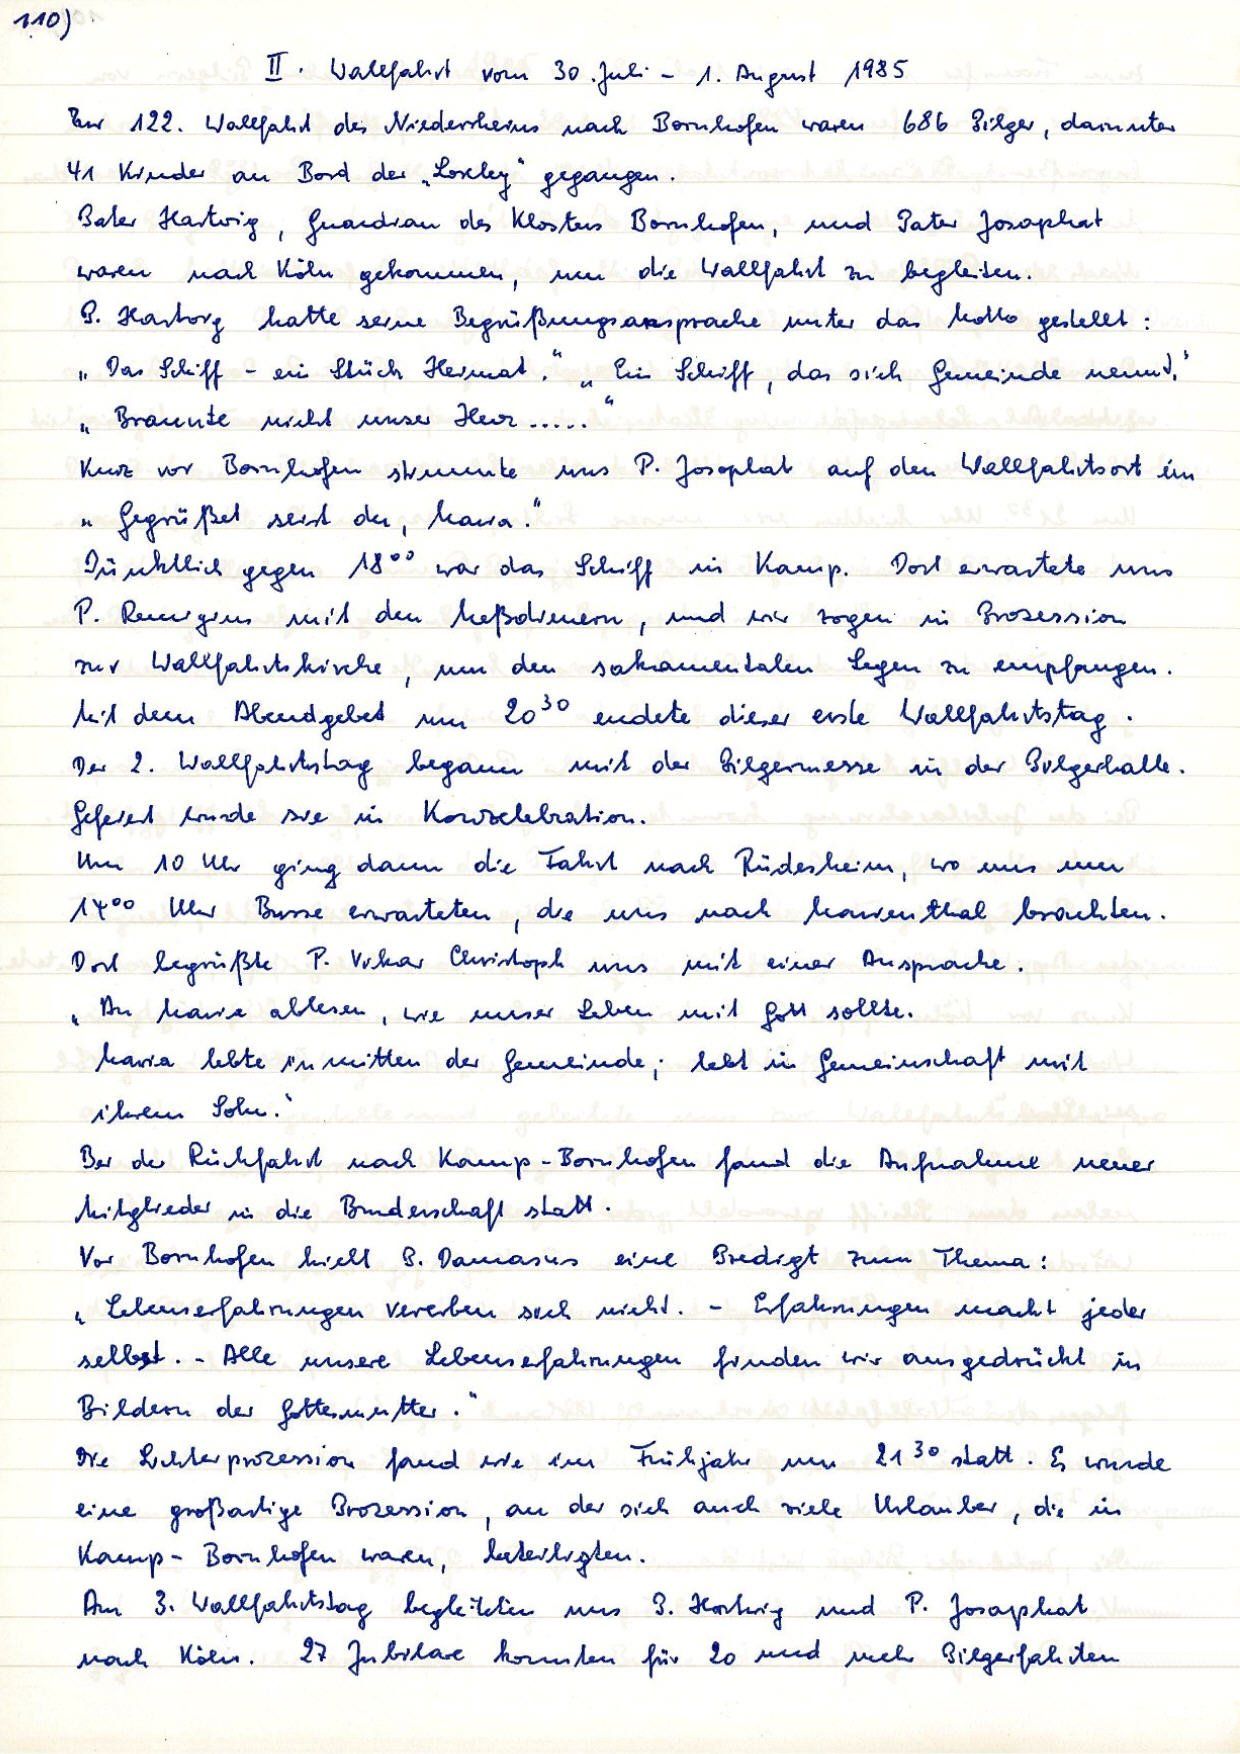 110)
II. Wallfahrt vom 30. Juli - 1. August 1985
Zur 122. Wallfahrt des Niederrheins nach Bornhofen waren 686 Pilger, darunter
41 Kinder an Bord der „Loreley" gegangen.
Pater Hartwig, Guardian des Klosters Bornhofen, und Pater Josaphat
waren nach Köln gekommen, um die Wallfahrt zu begleiten.
P. Hartwig hatte seine Begrüßungsansprache unter das Motto gestellt:
„Das Schiff - ein Stück Heimat." „Ein Schiff, das sich Gemeinde nennt."
„Brannte nicht unser Herz ....."
Kurz vor Bornhofen stimmte uns P. Josaphat auf den Wallfahrtsort ein
„Gegrüßet seist du, Maria."
Pünktlich gegen 18⁰⁰ war das Schiff in Kamp. Dort erwartete uns
P. Remigius mit den Meßdienern, und wir zogen in Prozession
zur Wallfahrtskirche, um den sakramentalen Segen zu empfangen.
Mit dem Abendgebet um 20³⁰ endete dieser erste Wallfahrtstag.
Der 2. Wallfahrtstag begann mit der Pilgermesse in der Pilgerhalle.
Gefeiert wurde sie in Konzelebration.
Um 10 Uhr ging dann die Fahrt nach Rüdesheim, wo uns um
14⁰⁰ Uhr Busse erwarteten, die uns nach Marienthal brachten.
Dort begrüßte P. Vikar Christoph uns mit einer Ansprache.
„An Maria ablesen, wie unser Leben mit Gott sollte.
Maria lebte inmitten der Gemeinde; lebt in Gemeinschaft mit
ihrem Sohn."
Bei der Rückfahrt nach Kamp-Bornhofen fand die Aufnahme neuer
Mitglieder in die Bruderschaft statt.
Vor Bornhofen hielt P. Damasus eine Predigt zum Thema:
„Lebenserfahrungen vererben sich nicht. - Erfahrungen macht jeder
selbst. - Alle unsere Lebenserfahrungen finden wir ausgedrückt in
Bildern der Gottesmutter."
Die Lichterprozession fand wie im Frühjahr um 21³⁰ statt. Es wurde
eine großartige Prozession, an der sich auch viele Urlauber, die in
Kamp-Bornhofen waren, beteiligten.
Am 3. Wallfahrtstag begleiteten uns P. Hartwig und P. Josaphat
nach Köln. 27 Jubilare konnten für 20 und mehr Pilgerfahrten